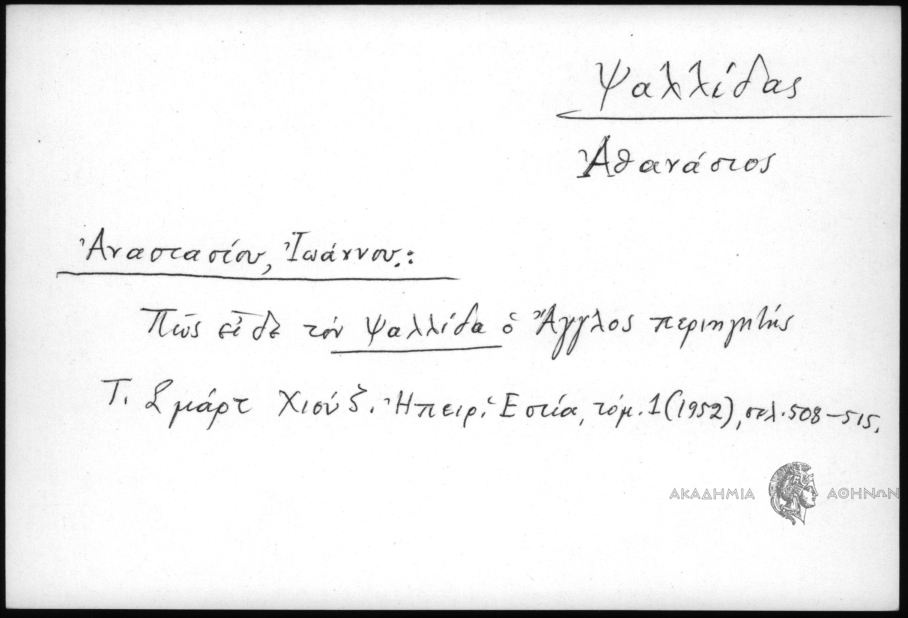 Ψαλλίδας
Ἀθανάσιος
Ἀναστασίου, Ἰωάννου.:
Πῶς εἶδε τόν Ψαλλίδα ὁ Ἄγγλος περιηγητής
Τ. Σμάρτ Χιούζ. Ἠπειρ. Ἑστία, τόμ. 1 (1952), σελ. 508-515.
ΑΚΑΔΗΜΙΑ ΑΘΗΝΩΝ